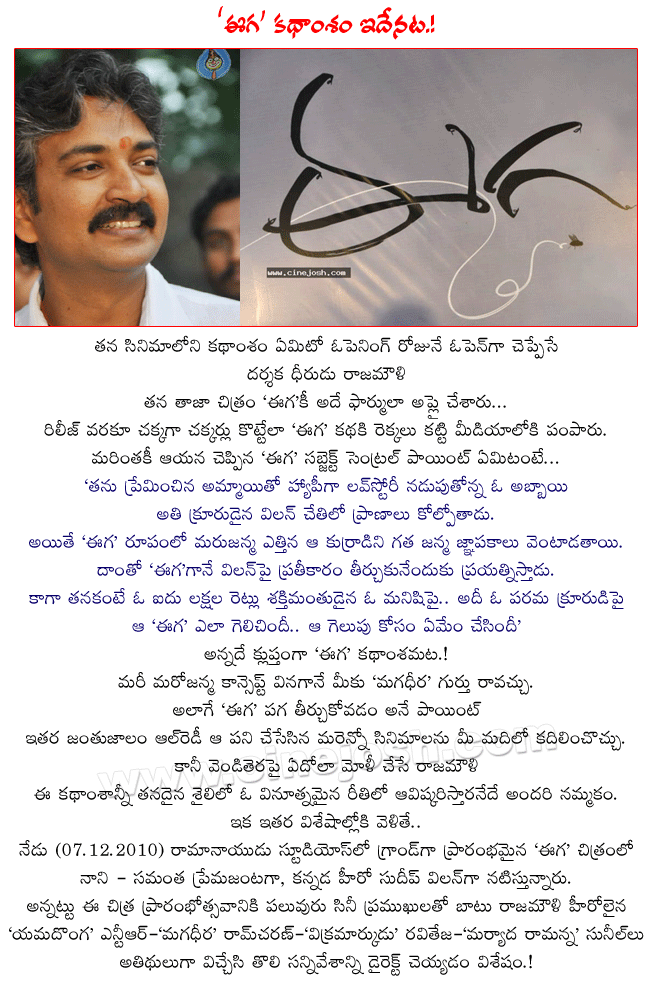 'ఈగ' కథాంశం ఇదేనట.!
ఈగ
www.cinejosh.com
తన సినిమాలోని కథాంశం ఏమిటో ఓపెనింగ్ రోజునే ఓపెన్‌గా చెప్పేసే
దర్శక ధీరుడు రాజమౌళి
తన తాజా చిత్రం 'ఈగ'కీ అదే ఫార్ములా అప్లై చేశారు...
రిలీజ్ వరకూ చక్కగా చక్కర్లు కొట్టేలా 'ఈగ' కథకి రెక్కలు కట్టి మీడియాలోకి పంపారు.
మరింతకీ ఆయన చెప్పిన 'ఈగ' సబ్జెక్ట్ సెంట్రల్ పాయింట్ ఏమిటంటే...
'తను ప్రేమించిన అమ్మాయితో హ్యాపీగా లవ్‌స్టోరీ నడుపుతోన్న ఓ అబ్బాయి
అతి క్రూరుడైన విలన్ చేతిలో ప్రాణాలు కోల్పోతాడు.
అయితే 'ఈగ' రూపంలో మరుజన్మ ఎత్తిన ఆ కుర్రాడిని గత జన్మ జ్ఞాపకాలు వెంటాడతాయి.
దాంతో 'ఈగ'గానే విలన్‌పై ప్రతీకారం తీర్చుకునేందుకు ప్రయత్నిస్తాడు.
కాగా తనకంటే ఓ ఐదు లక్షల రెట్లు శక్తిమంతుడైన ఓ మనిషిపై.. అదీ ఓ పరమ క్రూరుడిపై
ఆ 'ఈగ' ఎలా గెలిచిందీ.. ఆ గెలుపు కోసం ఏమేం చేసిందీ'
అన్నదే క్లుప్తంగా 'ఈగ' కథాంశమట.!
మరీ మరోజన్మ కాన్సెప్ట్ వినగానే మీకు 'మగధీర' గుర్తు రావచ్చు.
అలాగే 'ఈగ' పగ తీర్చుకోవడం అనే పాయింట్
ఇతర జంతుజాలం ఆల్‌రెడీ ఆ పని చేసేసిన మరెన్నో సినిమాలను మీ మదిలో కదిలించొచ్చు.
కానీ వెండితెరపై ఏదోలా మోళీ చేసే రాజమౌళి
ఈ కథాంశాన్నీ తనదైన శైలిలో ఓ వినూత్నమైన రీతిలో ఆవిష్కరిస్తారనేదే అందరి నమ్మకం.
ఇక ఇతర విశేషాల్లోకి వెళితే..
నేడు (07.12.2010) రామానాయుడు స్టూడియోస్‌లో గ్రాండ్‌గా ప్రారంభమైన 'ఈగ' చిత్రంలో
నాని - సమంత ప్రేమజంటగా, కన్నడ హీరో సుదీప్ విలన్‌గా నటిస్తున్నారు.
అన్నట్టు ఈ చిత్ర ప్రారంభోత్సవానికి పలువురు సినీ ప్రముఖులతో బాటు రాజమౌళి హీరోలైన
'యమదొంగ' ఎన్టీఆర్-'మగధీర' రామ్‌చరణ్-'విక్రమార్కుడు' రవితేజ-'మర్యాద రామన్న' సునీల్‌లు
అతిథులుగా విచ్చేసి తొలి సన్నివేశాన్ని డైరెక్ట్ చెయ్యడం విశేషం.!
www.cinejosh.com